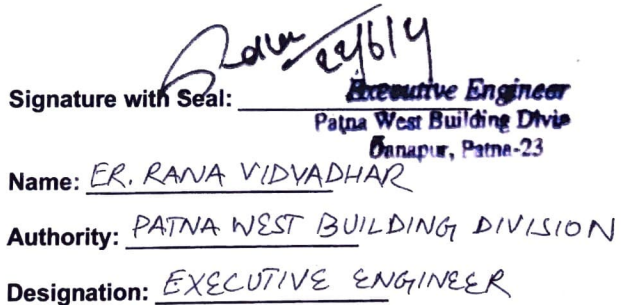 22/6/14
Signature with Seal: Executive Engineer
Patna West Building Divis
Danapur, Patna-23
Name: ER. RANA VIDVADHAR
Authority: PATNA WEST BUILDING DIVISION
Designation: EXECUTIVE ENGINEER